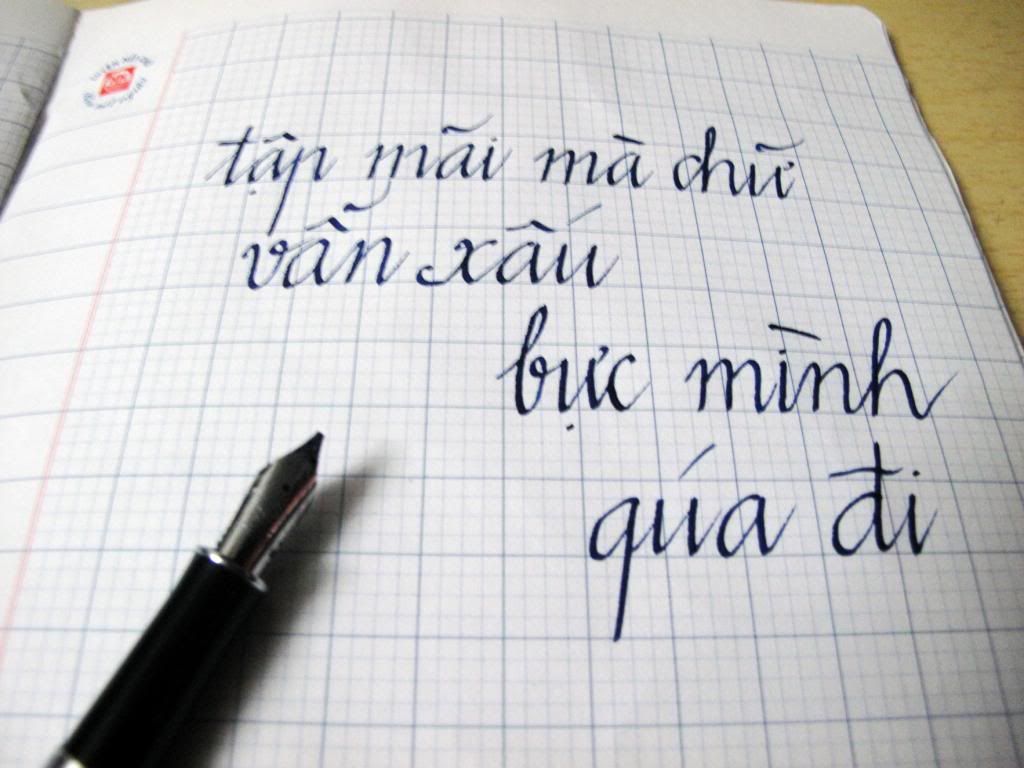 tập mãi mà chữ
vẫn xấu
bực mình
qúa đi